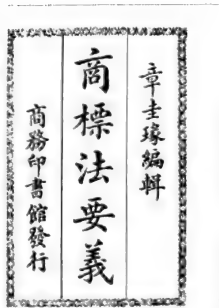 章圭瑑編輯
商標法要義
商務印書館發行